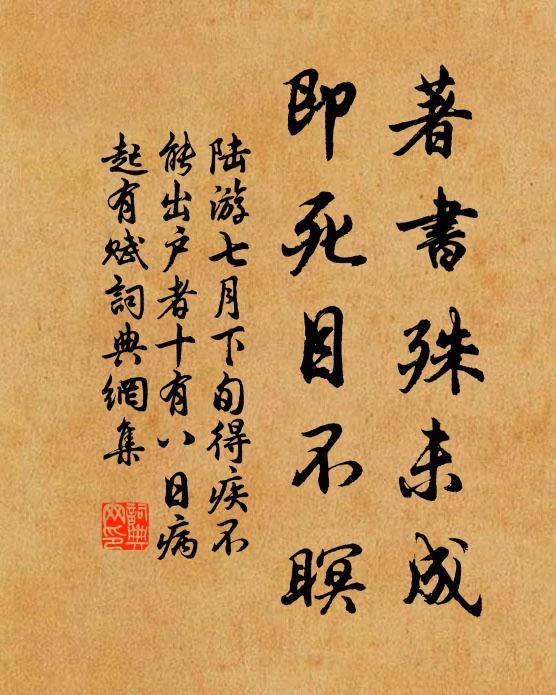 著書殊未成
即死目不瞑
陆游七月下旬得疾不
能出户者十有八日病
起有赋詞典網集
詞典
网印